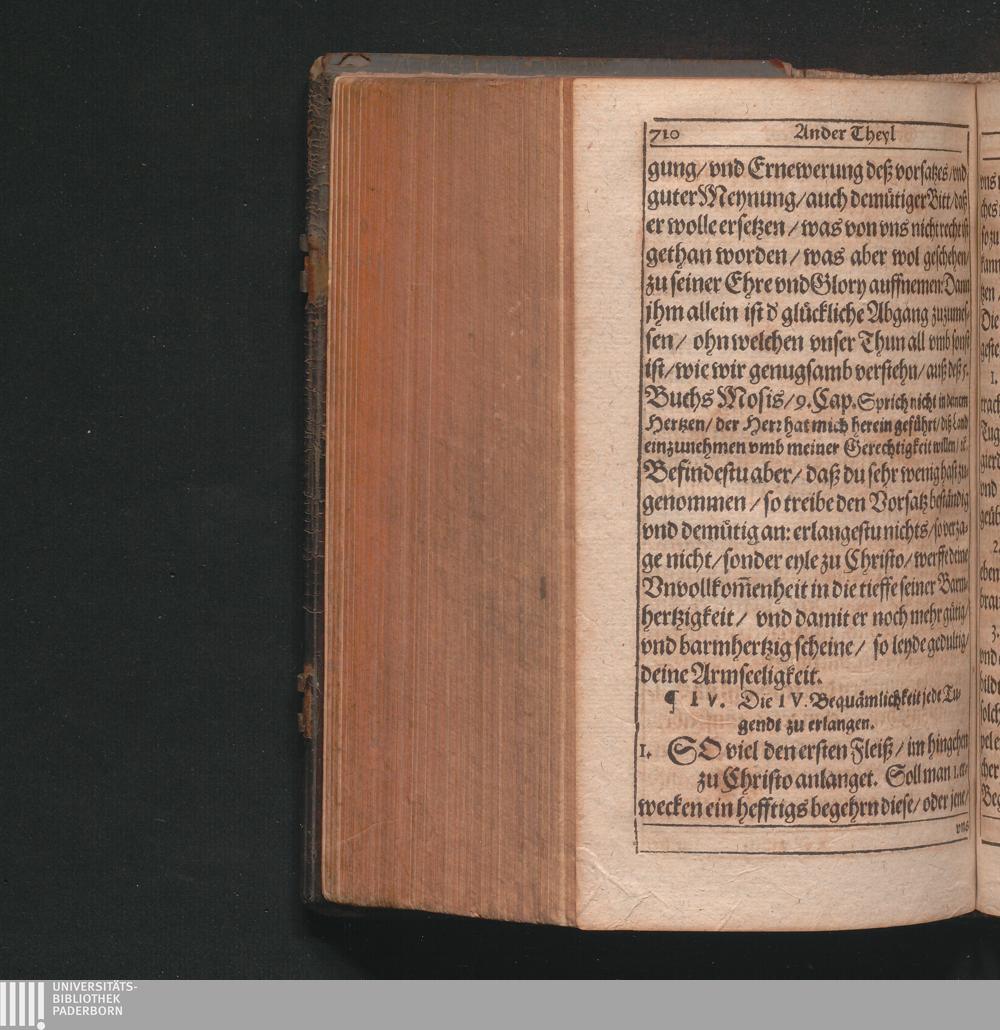 710 Ander Theyl
gung/ vnd Ernewerung deß vorsatzes/ vnd
guter Meynung/ auch demütiger Bitt/ daß
er wolle ersetzen/ was von vns nicht recht ist
gethan worden/ was aber wol geschehen/
zu seiner Ehre vnd Glory auffnemen: Dann
jhm allein ist d' glückliche Abgang zuzumes-
sen/ ohn welchen vnser Thun all vmb sonst
ist/ wie wir genugsamb verstehn/ auß deß 5.
Buchs Mosis/ 9. Cap. Sprich nicht in deinem
Hertzen/ der Herr hat mich herein geführt/ diß Land
einzunehmen vmb meiner Gerechtigkeit willen/ ꝛc.
Befindestu aber/ daß du sehr wenig hast zu-
genommen/ so treibe den Vorsatz beständig
vnd demütig an: erlangestu nichts/ so verza-
ge nicht/ sonder eyle zu Christo/ werffe deine
Vnvollkom̄enheit in die tieffe seiner Barm-
hertzigkeit/ vnd damit er noch mehr gütig/
vnd barmhertzig scheine/ so leyde gedultig/
deine Armseeligkeit.
¶ IV. Die IV. Bequämlichkeit jede Tu-
gendt zu erlangen.
1. SO viel den ersten Fleiß/ im hingehen
zu Christo anlanget. Soll man 1. er-
wecken ein hefftigs begehrn diese/ oder jene/
vns
UNIVERSITÄTS-
BIBLIOTHEK
PADERBORN